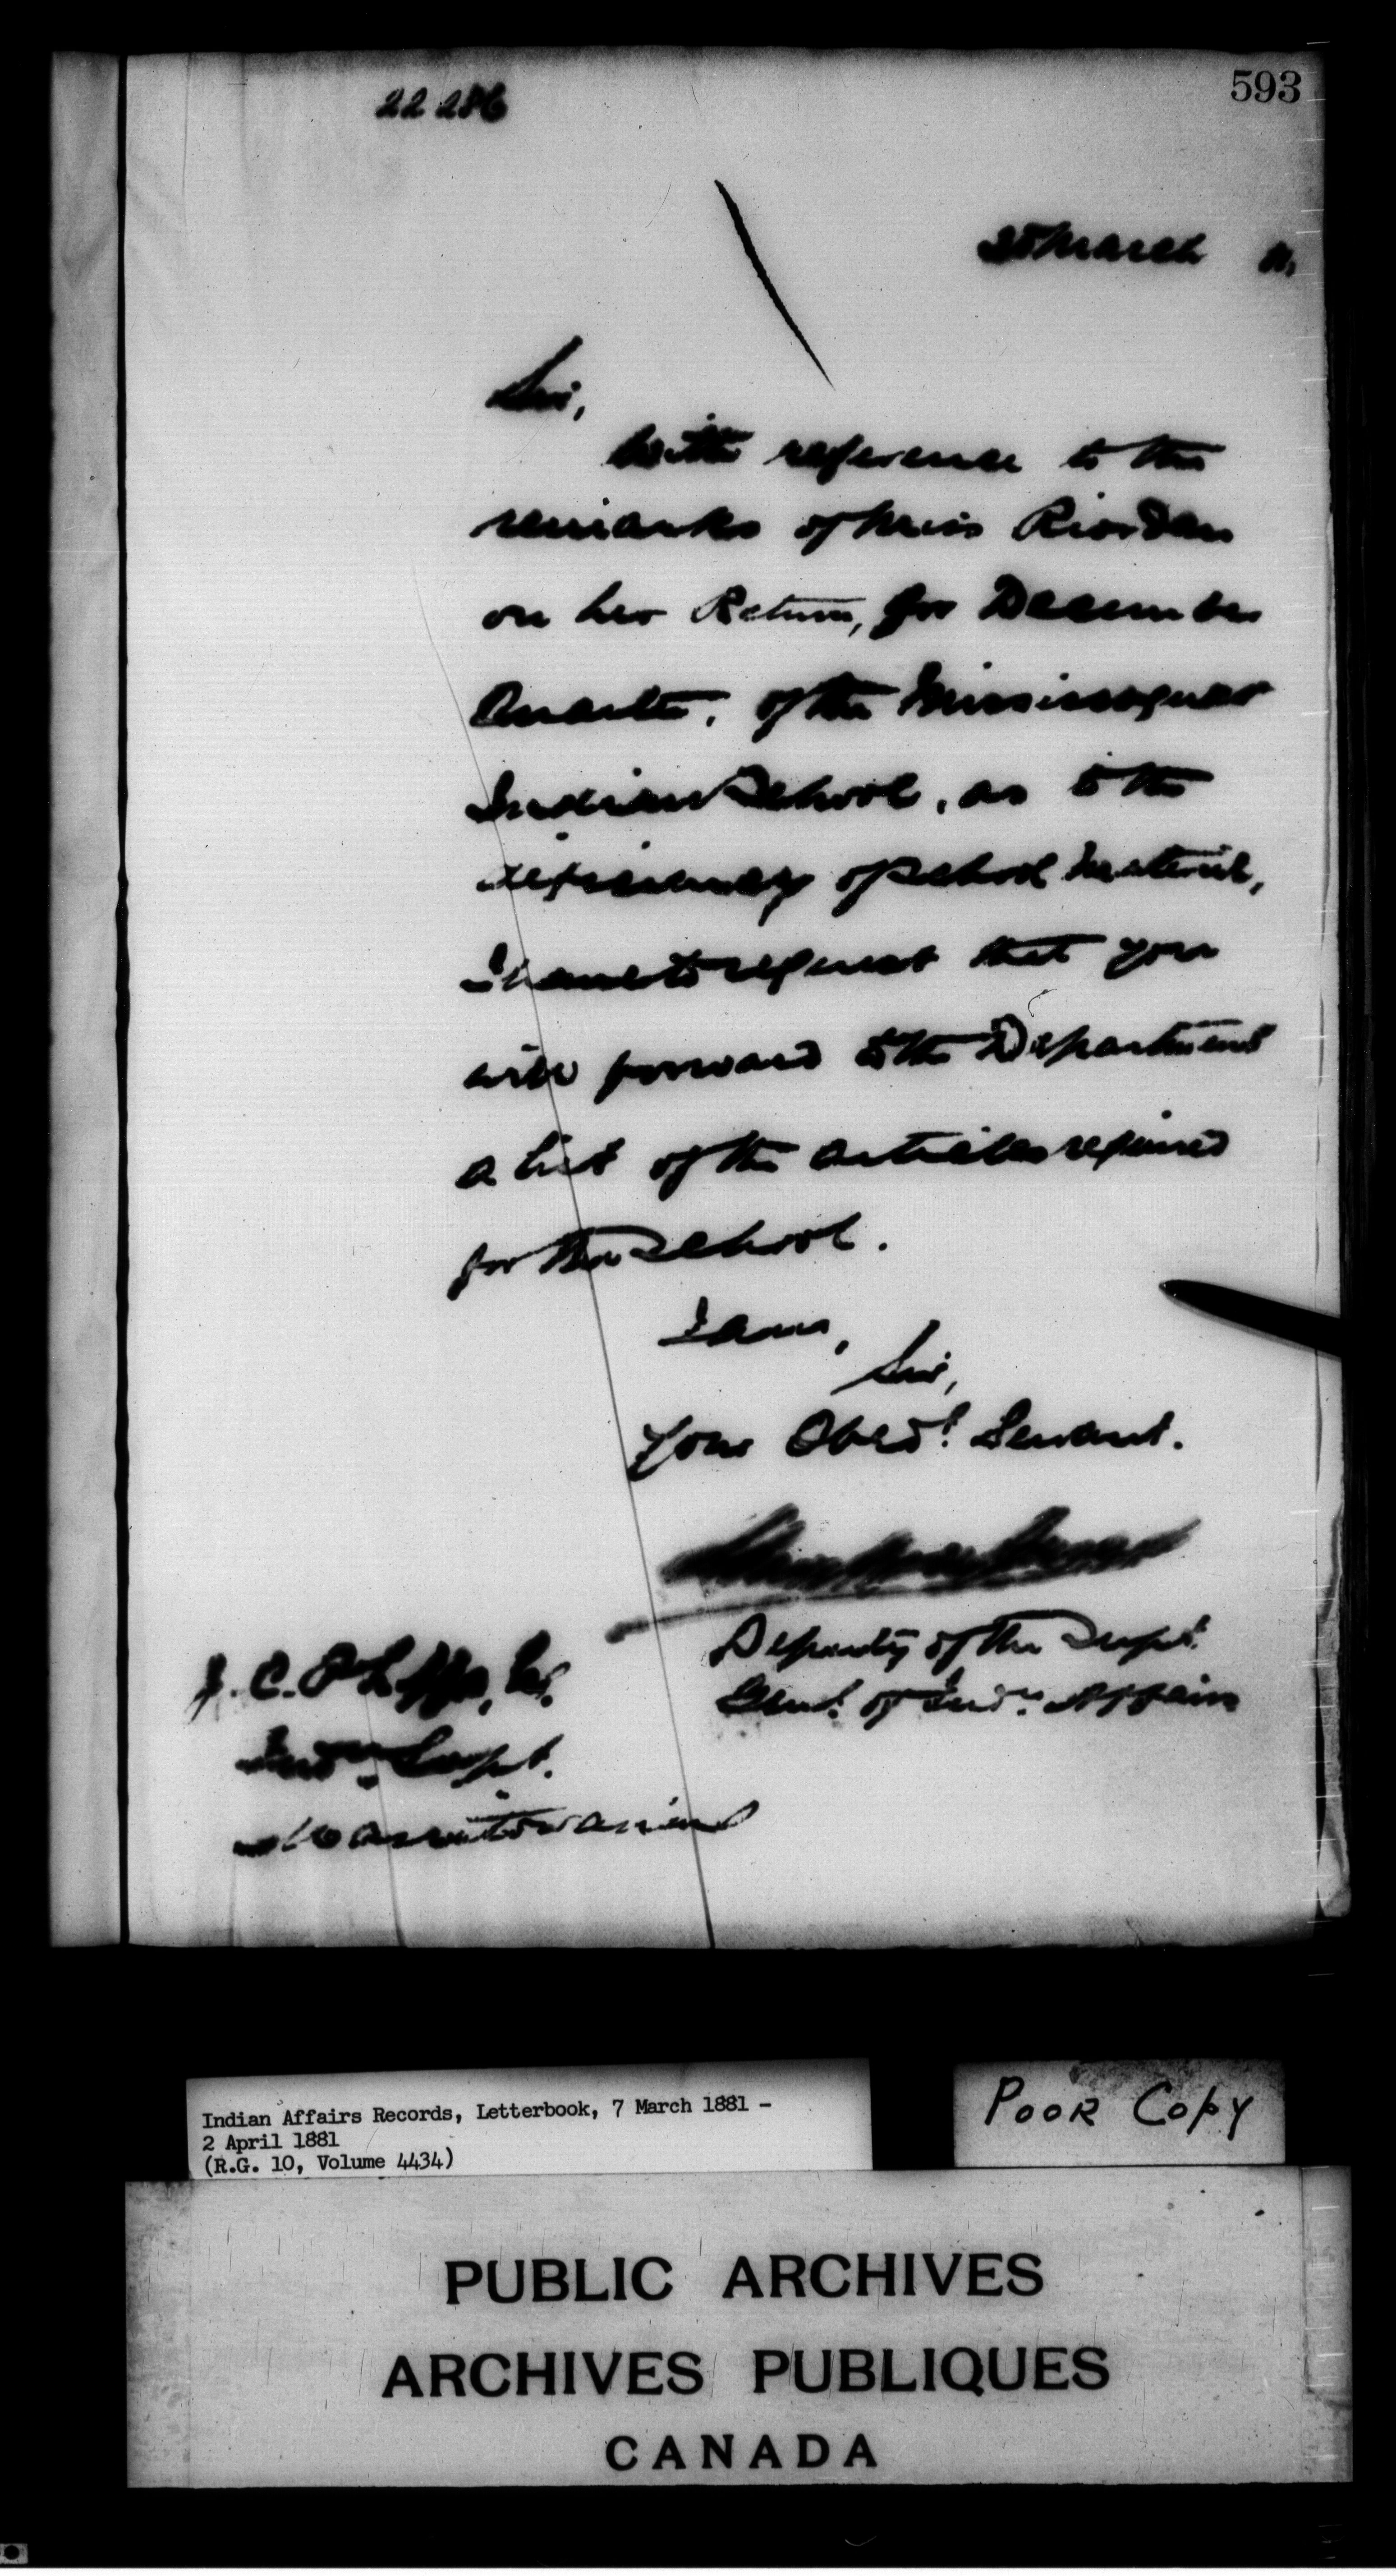 593
22 286
March
Sir,
With reference to the
remarks of Miss Riordan
on her Return, for December
Quarter, of the Mississagua
Indian School, as to the
deficiency of School material,
I have to request that you
will forward to the Department
a list of the articles required
for the School.
I am,
Sir,
Your Obedt. Servant.
Deputy of the Supt.
Genl. of Indn. Affairs
J. C. Phipps, Esq.
Indn. Supt.
Manitowaning
Indian Affairs Records, Letterbook, 7 March 1881 -
2 April 1881
(R.G. 10, Volume 4434)
POOR COPY
PUBLIC ARCHIVES
ARCHIVES PUBLIQUES
CANADA